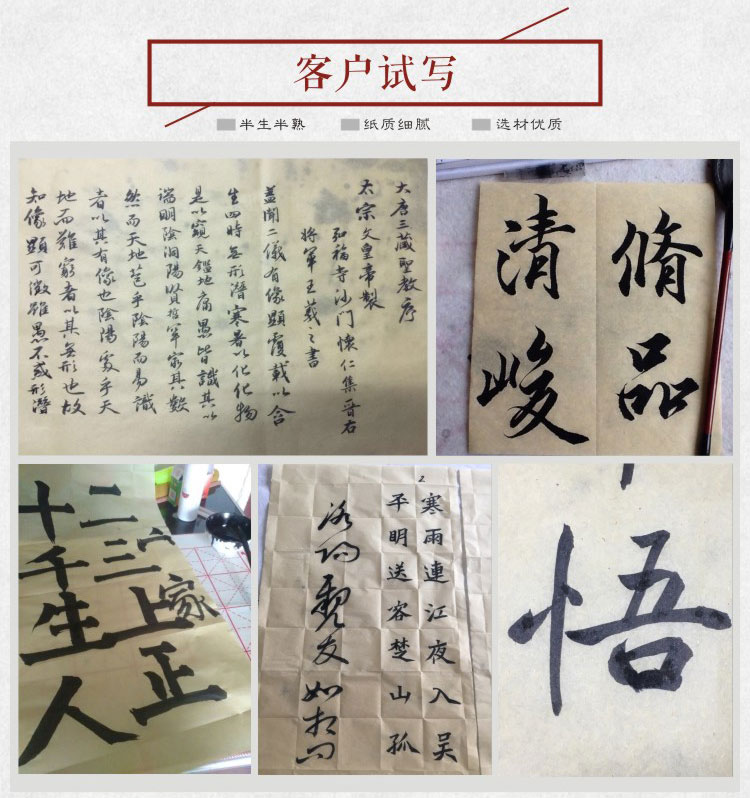 客户试写
半生半熟
纸质细腻
选材优质
大唐三藏聖教序
太宗文皇帝製
弘福寺沙门懷仁集晉右
将軍王羲之書
蓋聞二儀有像顯覆載以含
生四時無形潛寒暑以化化物
是以窺天鑑地庸愚皆識其以
端明陰洞陽賢哲罕窮其数
然而天地苞乎陰陽而易識
者以其有像也陰陽處乎天
地而難窮者以其無形也故
知像顯可徵雖愚不惑形潛
脩品
清峻
宀家
二三上正
十千生人
2
寒雨連江夜入吴
平明送客楚山孤
洛阳親友如相问
悟